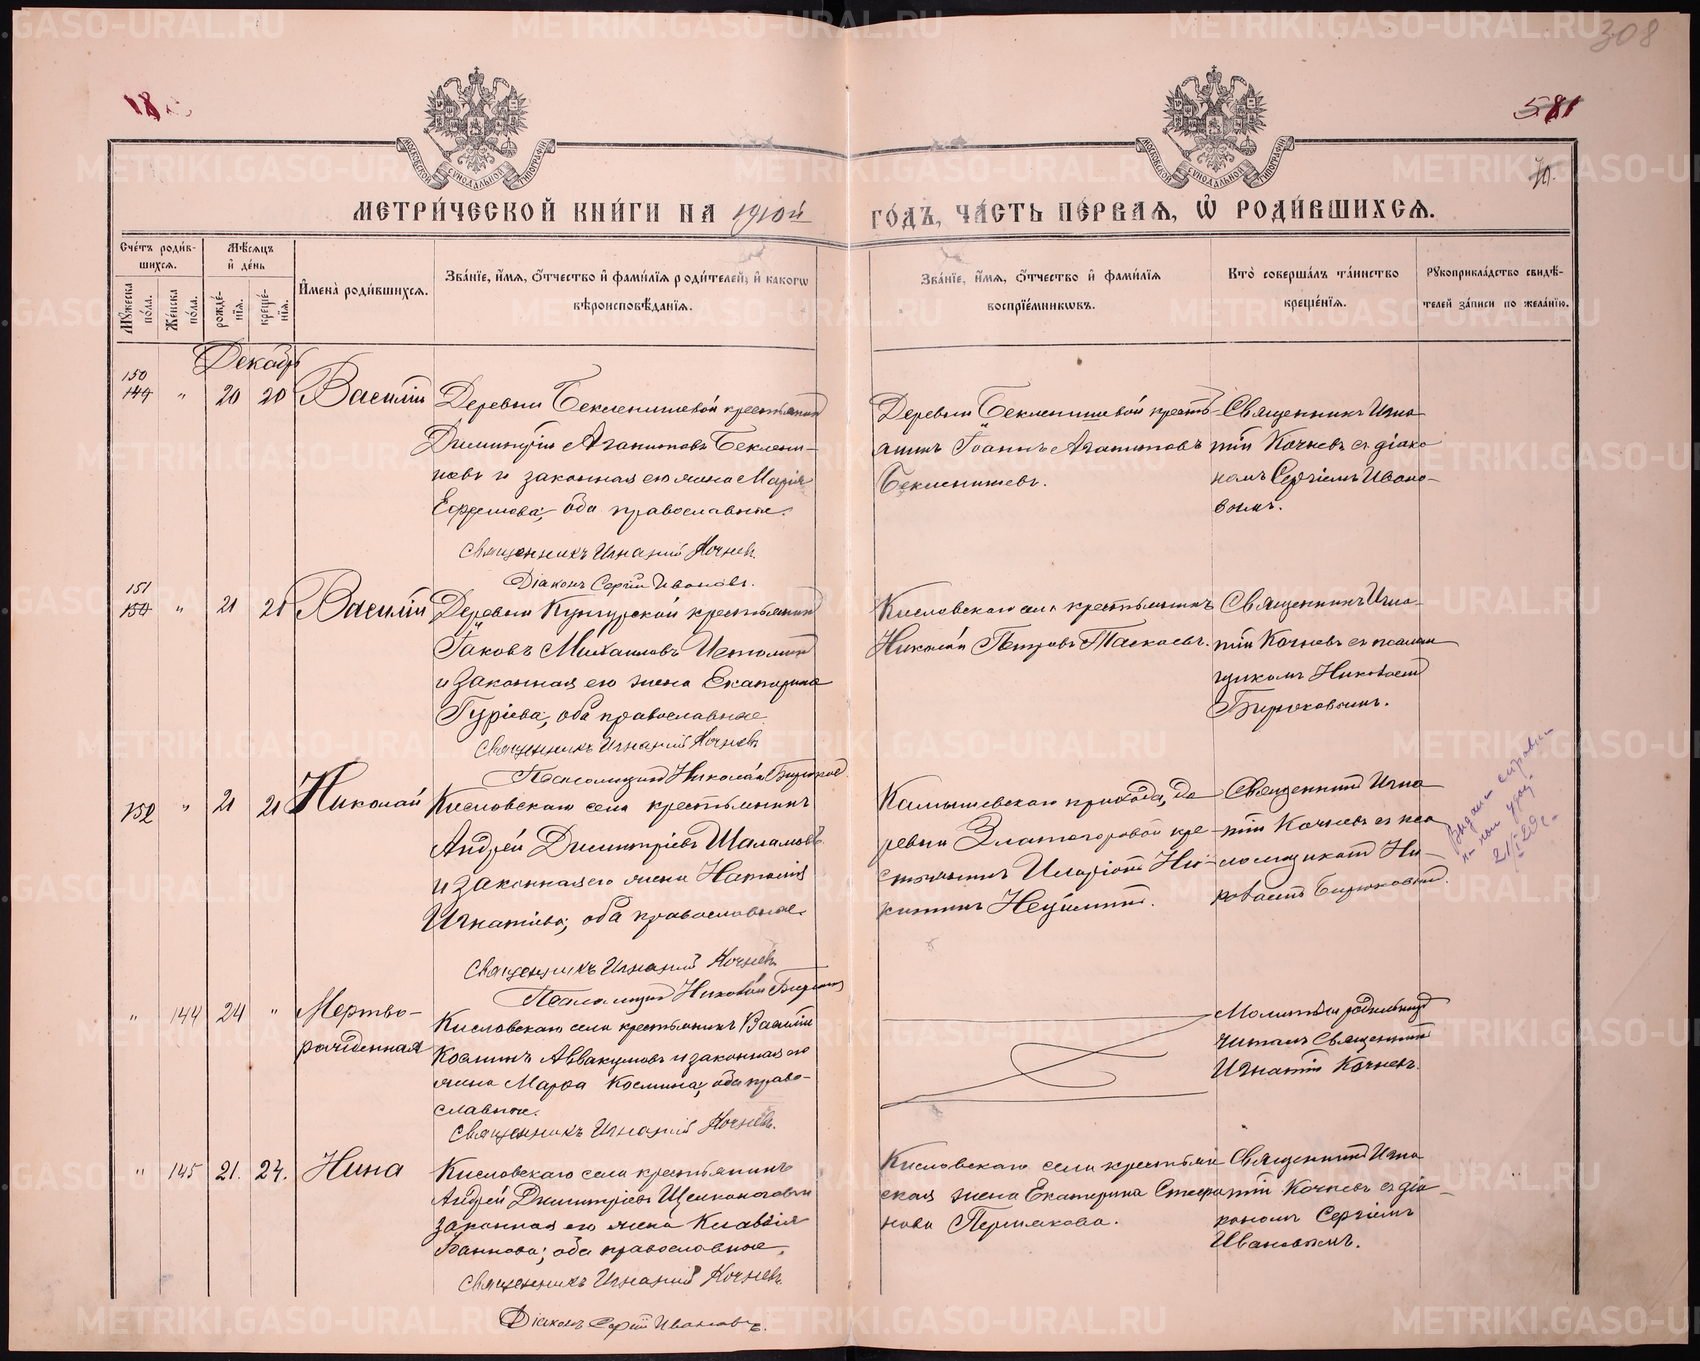 METRIKI.GASO-URAL.RU
308
581
МОСКОВСКОЙ СѴНОДАЛЬНОЙ ТИПОГРАФІИ
МОСКОВСКОЙ СѴНОДАЛЬНОЙ ТИПОГРАФІИ
МЕТРИ́ЧЕСКОЙ КНИ́ГИ НА 1910й ГО́ДЪ, ЧА́СТЬ ПЕ́РВАЯ, Ѡ҆ РОДИ́ВШИХСЯ.
Сче́тъ роди́в-
шихся.
Му́жеска по́ла.
Же́нска по́ла.
Мѣ́сяцъ
и҆ де́нь
рожде́-
нїя.
креще́-
нїя.
И҆мена̀ роди́вшихся.
Зва́нїе, и҆́мя, ѻ҆́тчество и҆ фами́лїя роди́телей, и҆ како́гѡ
вѣроисповѣ́данїя.
Зва́нїе, и҆́мя, ѻ҆́тчество и҆ фами́лїя
воспрїе́мникѡвъ.
Кто̀ соверша́лъ та́инство
креще́нїя.
Рукоприкла́дство свидѣ́-
телей за́писи по жела́нїю.
Декабрь
150
149 " 20 20 Василій
Деревни Бекленищевой крестьянинъ
Димитрій Агапитовъ Беклени-
щевъ и законная его жена Марія
Ефремова; оба православные.
Священникъ Игнатій Кочневъ
Діаконъ Сергій Ивановъ.
Деревни Бекленищевой кресть-
янинъ Іоаннъ Агапитовъ
Бекленищевъ.
Священникъ Игна-
тій Кочневъ съ діако-
номъ Сергіемъ Ивано-
вымъ.
151
150 " 21 21 Василій
Деревни Кунгурской крестьянинъ
Іаковъ Михаиловъ Истоминъ
и законная его жена Екатерина
Гуріева; оба православные.
Священникъ Игнатій Кочневъ
Псаломщикъ Николай Бирюковъ
Кисловскаго села крестьянинъ
Николай Петровъ Таскаевъ.
Священникъ Игна-
тій Кочневъ съ псалом-
щикомъ Николаемъ
Бирюковымъ.
152 " 21 21 Николай
Кисловскаго села крестьянинъ
Андрей Димитріевъ Шаламовъ
и законная его жена Наталія
Игнатіева; оба православные.
Священникъ Игнатій Кочневъ
Псаломщикъ Николай Бирюковъ
Камышевскаго прихода, де-
ревни Златогоровой кре-
стьянинъ Иларіонъ Ни-
китинъ
Священникъ Игна-
тій Кочневъ съ пса-
ломщикомъ Ни-
колаемъ Бирюковымъ.
Выдана справка
" 144 24 " Мертво-
рожденная
Кисловскаго села крестьянинъ Василій
Косминъ Аввакумовъ и законная его
жена Марѳа Космина; оба право-
славные.
Священникъ Игнатій Кочневъ.
Молитвы родильницѣ
читалъ Священникъ
Игнатій Кочневъ.
" 145 21. 24. Нина
Кисловскаго села крестьянинъ
Андрей Димитріевъ Щелконоговъ и
законная его жена Клавдія
Іоаннова; оба православные.
Священникъ Игнатій Кочневъ
Діаконъ Сергій Ивановъ.
Кисловскаго села крестьян-
ская жена Екатерина Стефа-
нова Пермякова.
Священникъ Игна-
тій Кочневъ съ діа-
кономъ Сергіемъ
Ивановымъ.